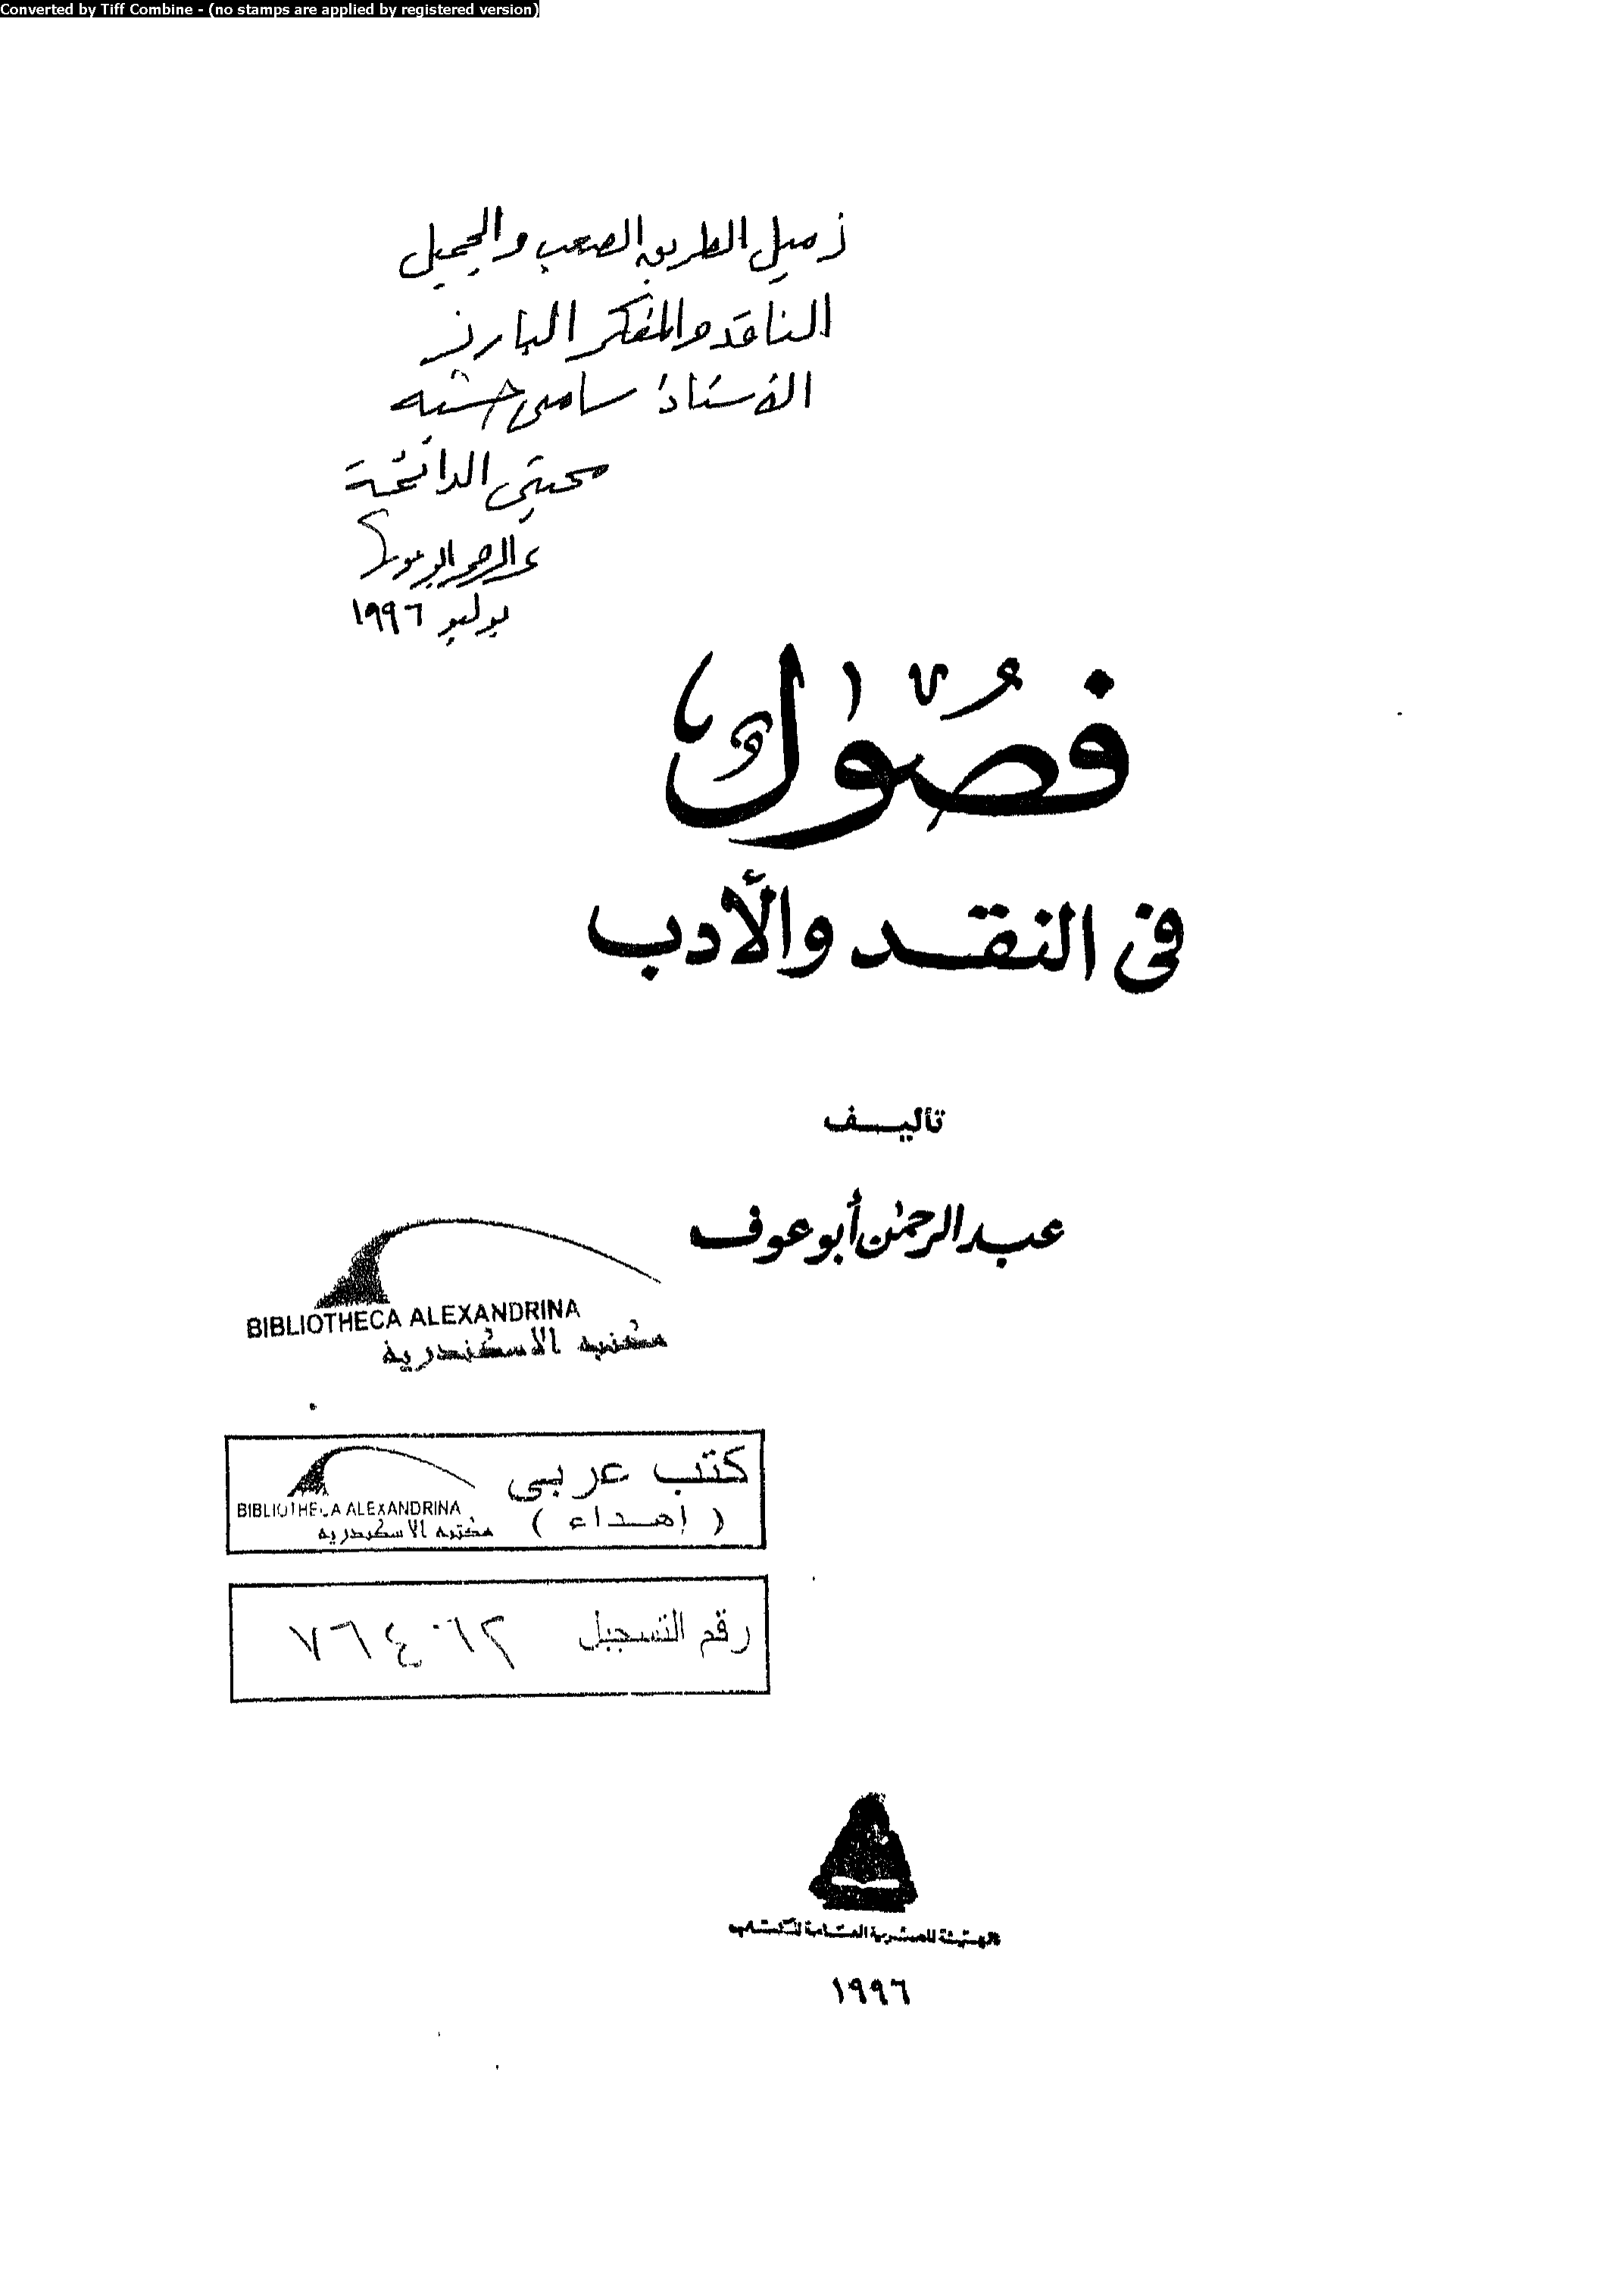 Converted by Tiff Combine - (no stamps are applied by registered version)
زميل الطريق الصعب والجميل
الناقد والمفكر البارز
الأستاذ سامى خشبه
محبتى الدائمة
عبد الرحمن أبو عوف
يوليو ١٩٩٦
فصول
فى النقد والأدب
تأليف
عبد الرحمن أبو عوف
BIBLIOTHECA ALEXANDRINA
مكتبة الاسكندرية
كتب عربى
( إهداء )
BIBLIOTHECA ALEXANDRINA
مكتبة الاسكندرية
رقم التسجيل ٧٦٤٠٦٢
الهيئة المصرية العامة للكتاب
١٩٩٦